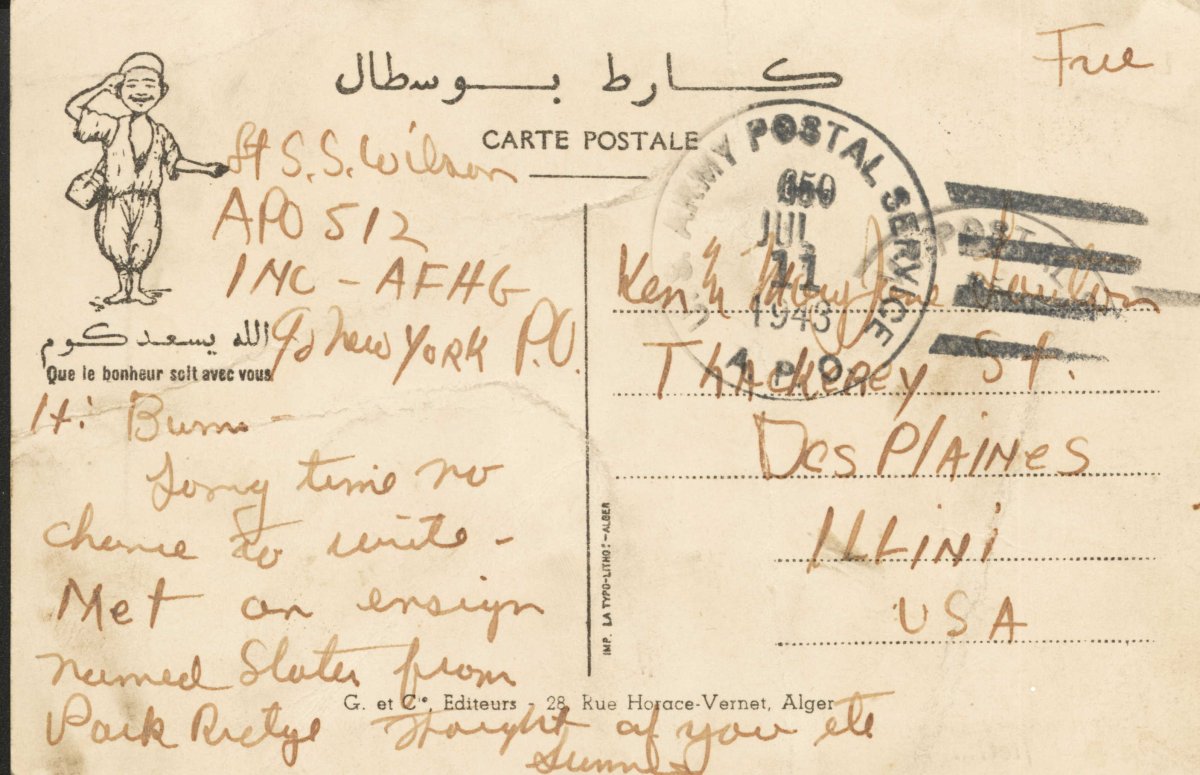 كارط بوسطال
Free
CARTE POSTALE
Lt S.S. Wilson
APO 512
INC - AFHG
℅ New York P.O.
الله يسعدكوم
Que le bonheur soit avec vous
Hi Bum -
Long time no
chance to write -
Met an ensign
named Slater from
Park Ridge Thought of you etc
U.S. ARMY POSTAL SERVICE
JUL
11
1943
A.P.O.
POSTAL
Ken Mary Jane
Thackerey St.
Des Plaines
ILLINI
USA
IMP. LA TYPO-LITHO.-ALGER
G. et Cie, Editeurs - 28, Rue Horace-Vernet, Alger